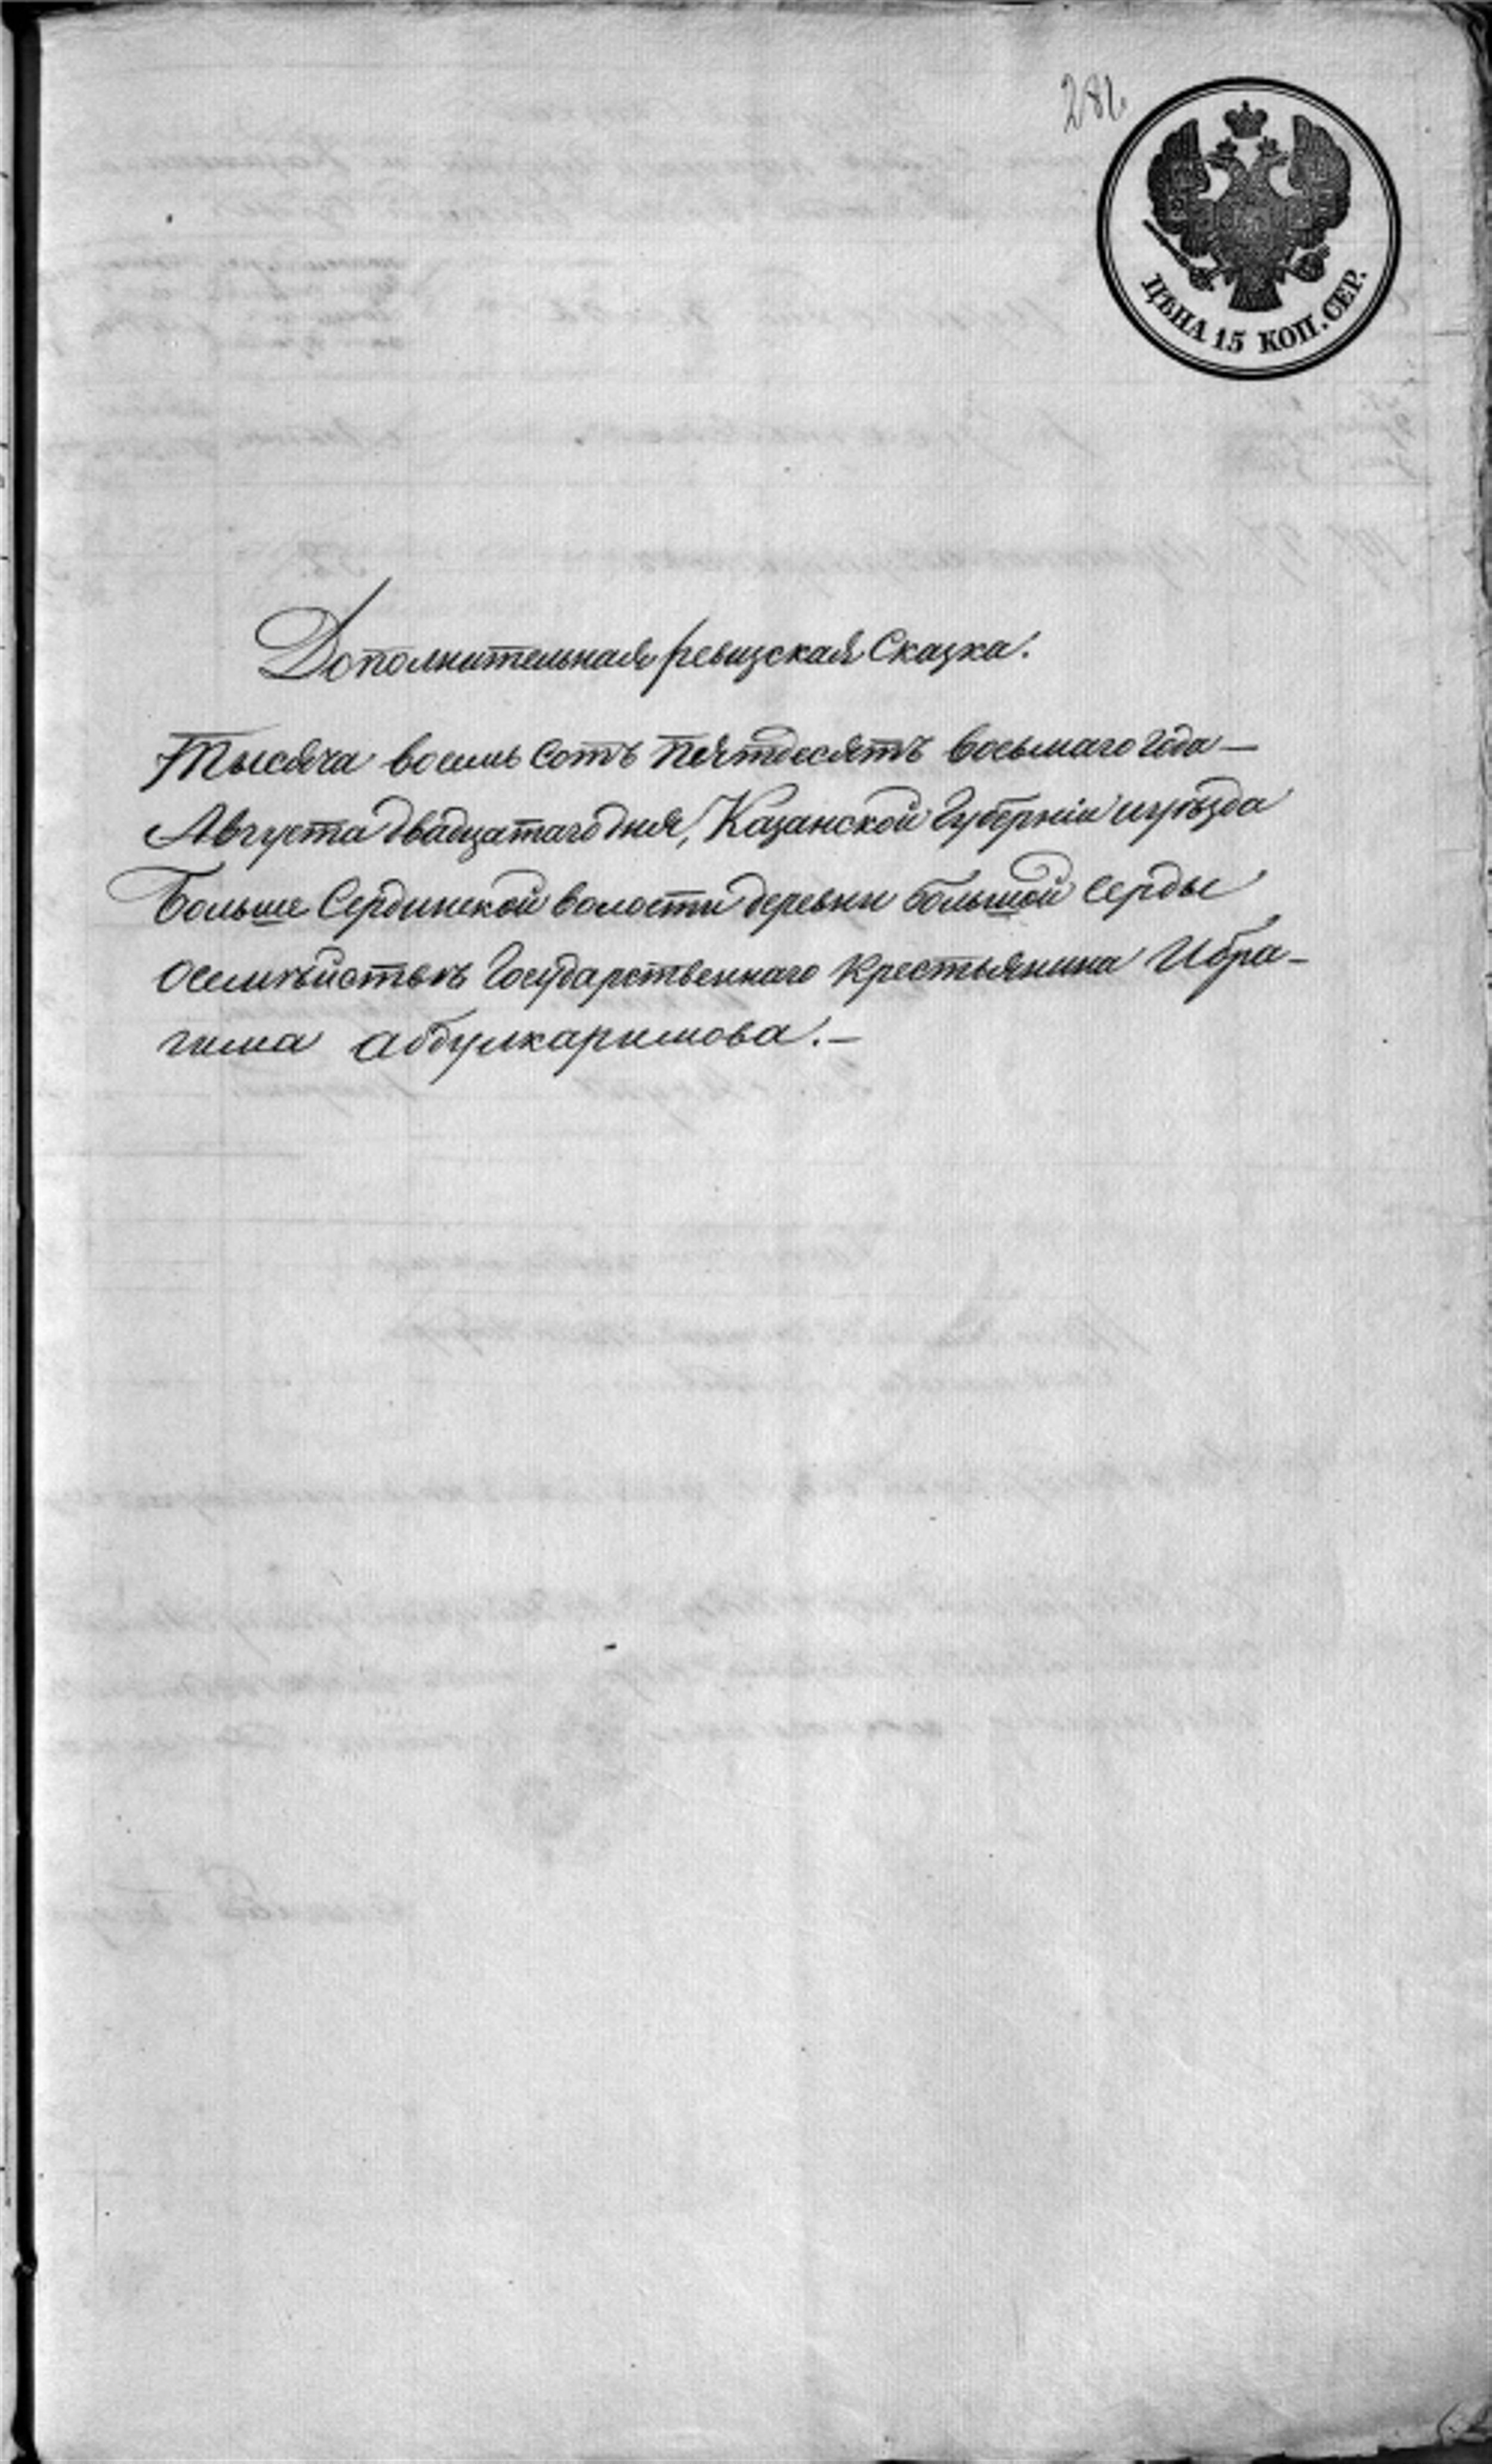 281.
ЦѢНА 15 КОП. СЕР.
Дополнительная ревизская Сказка.
Тысяча восемь сотъ пятдесятъ восьмаго года —
Августа двадцатаго дня, Казанской Губерніи и уѣзда
Больше Сердинской волости деревни большой Серды
о семѣйствѣ Государственнаго крестьянина Ибра-
гима абдулкаримова. —